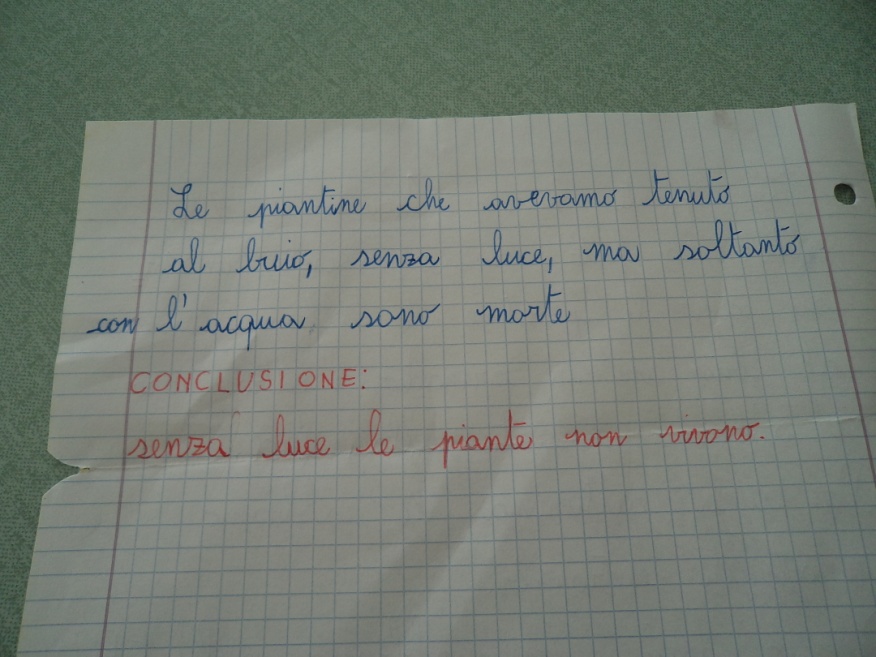 Le piantine che avevamo tenuto
al buio, senza luce, ma soltanto
con l'acqua sono morte
CONCLUSIONE:
senza luce le piante non vivono.